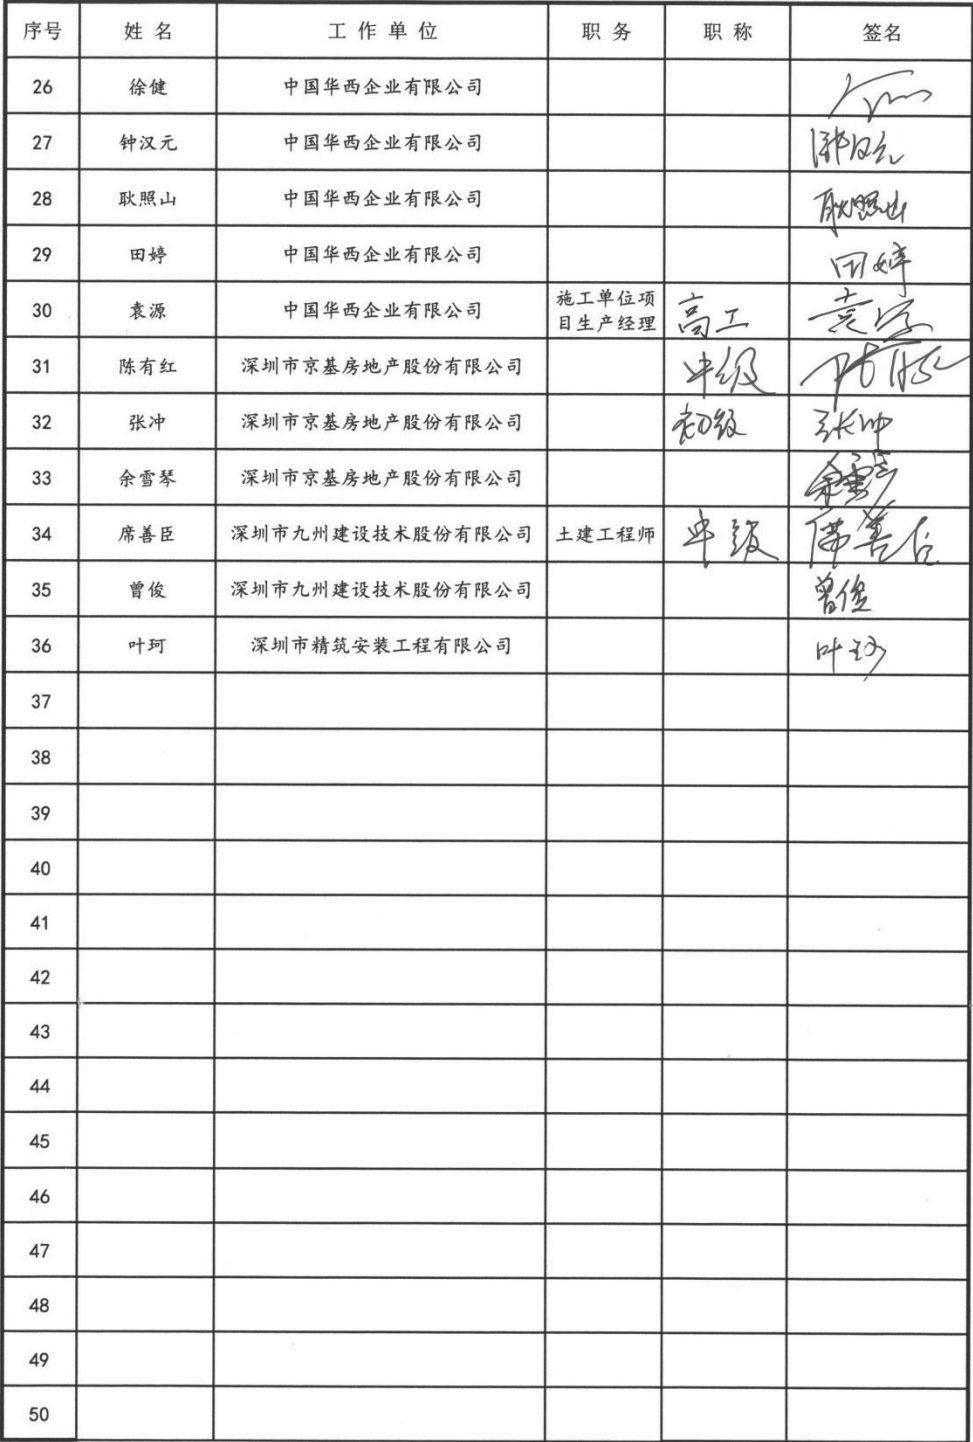 序号 姓 名 工 作 单 位 职 务 职 称 签名
26 徐健 中国华西企业有限公司
27 钟汉元 中国华西企业有限公司
28 耿照山 中国华西企业有限公司 耿照山
29 田婷 中国华西企业有限公司 田婷
30 袁源 中国华西企业有限公司 施工单位项目生产经理 高工 袁源
31 陈有红 深圳市京基房地产股份有限公司 中级
32 张冲 深圳市京基房地产股份有限公司 初级 张冲
33 余雪琴 深圳市京基房地产股份有限公司 余雪琴
34 席善臣 深圳市九州建设技术股份有限公司 土建工程师 中级 席善臣
35 曾俊 深圳市九州建设技术股份有限公司 曾俊
36 叶珂 深圳市精筑安装工程有限公司 叶珂
37
38
39
40
41
42
43
44
45
46
47
48
49
50